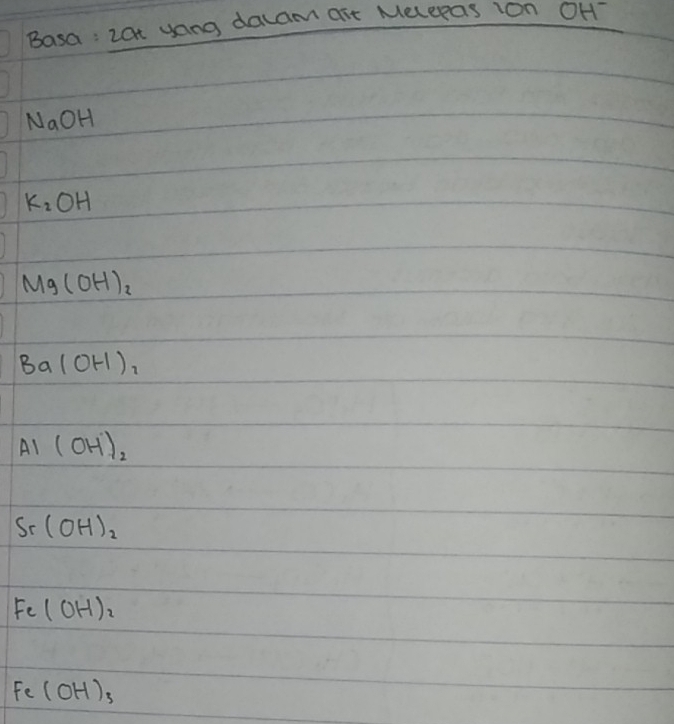 Basa : zat yang dalam air Melepas ion OH⁻
NaOH
K₂OH
Mg(OH)₂
Ba(OH)₂
Al (OH)₂
Sr(OH)₂
Fe(OH)₂
Fe(OH)₃